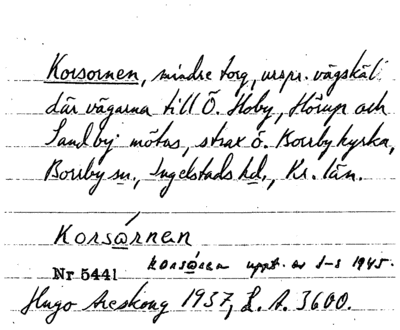 Korsornen, mindre torg, urspr. vägskäl
där vägarna till Ö. Hoby, Hörup och
Sandby mötas, strax ö. Borrby kyrka,
Borrby sn., Ingelstads hd., Kr. län.
Korsårnen
korsåren uppt. av J-S 1945.
Nr 5441
Hugo Areskoug 1937, L. A. 3600.